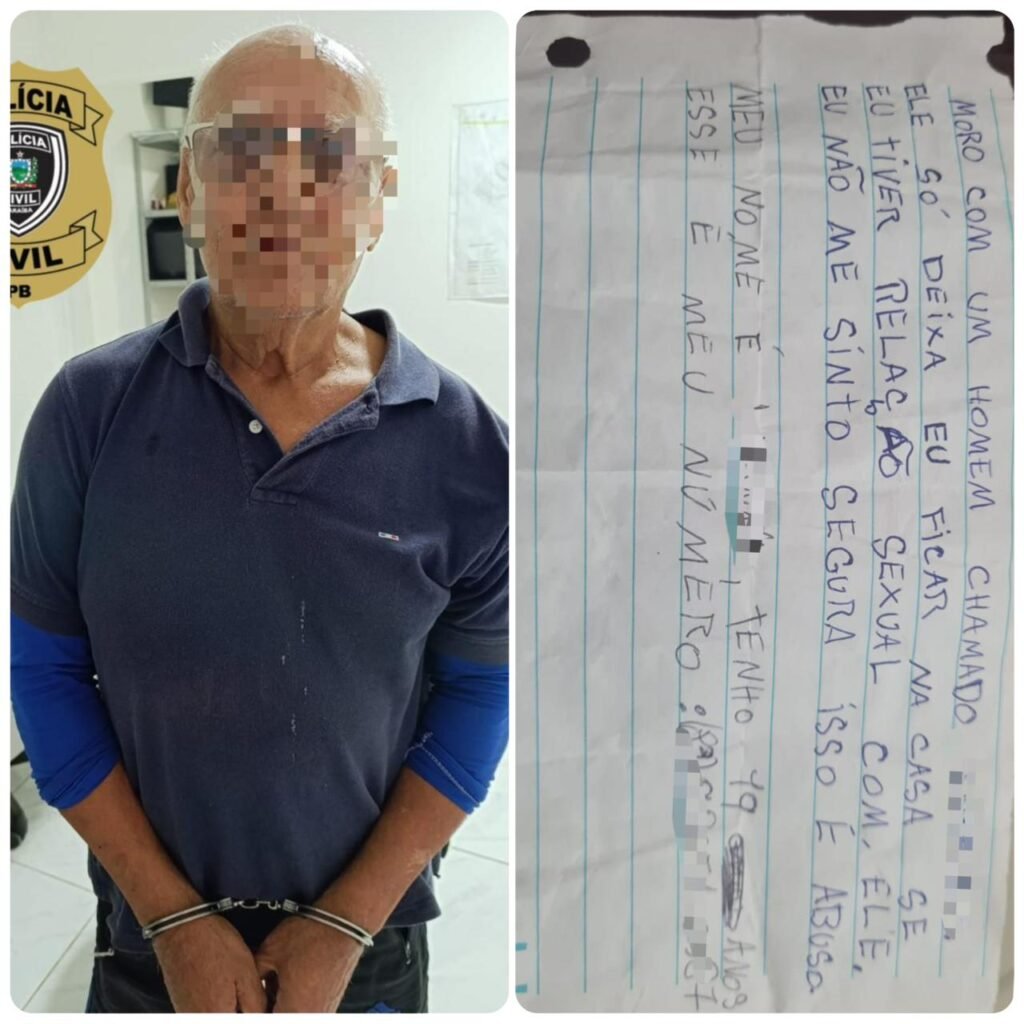 LÍCIA
POLÍCIA
CIVIL
PARAÍBA
VIL
PB
MORO COM UM HOMEM CHAMADO
ELE SÓ DEIXA EU FICAR NA CASA SE
EU TIVER RELAÇÃO SEXUAL COM, ELE.
EU NÃO ME SINTO SEGURA ISSO É ABUSO
MEU NOME É , TENHO 19 ANOS
ESSE É MEU NÚMERO.